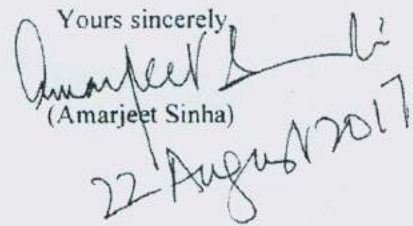 Yours sincerely,
Amarjeet Sinha
(Amarjeet Sinha)
22 August 2017